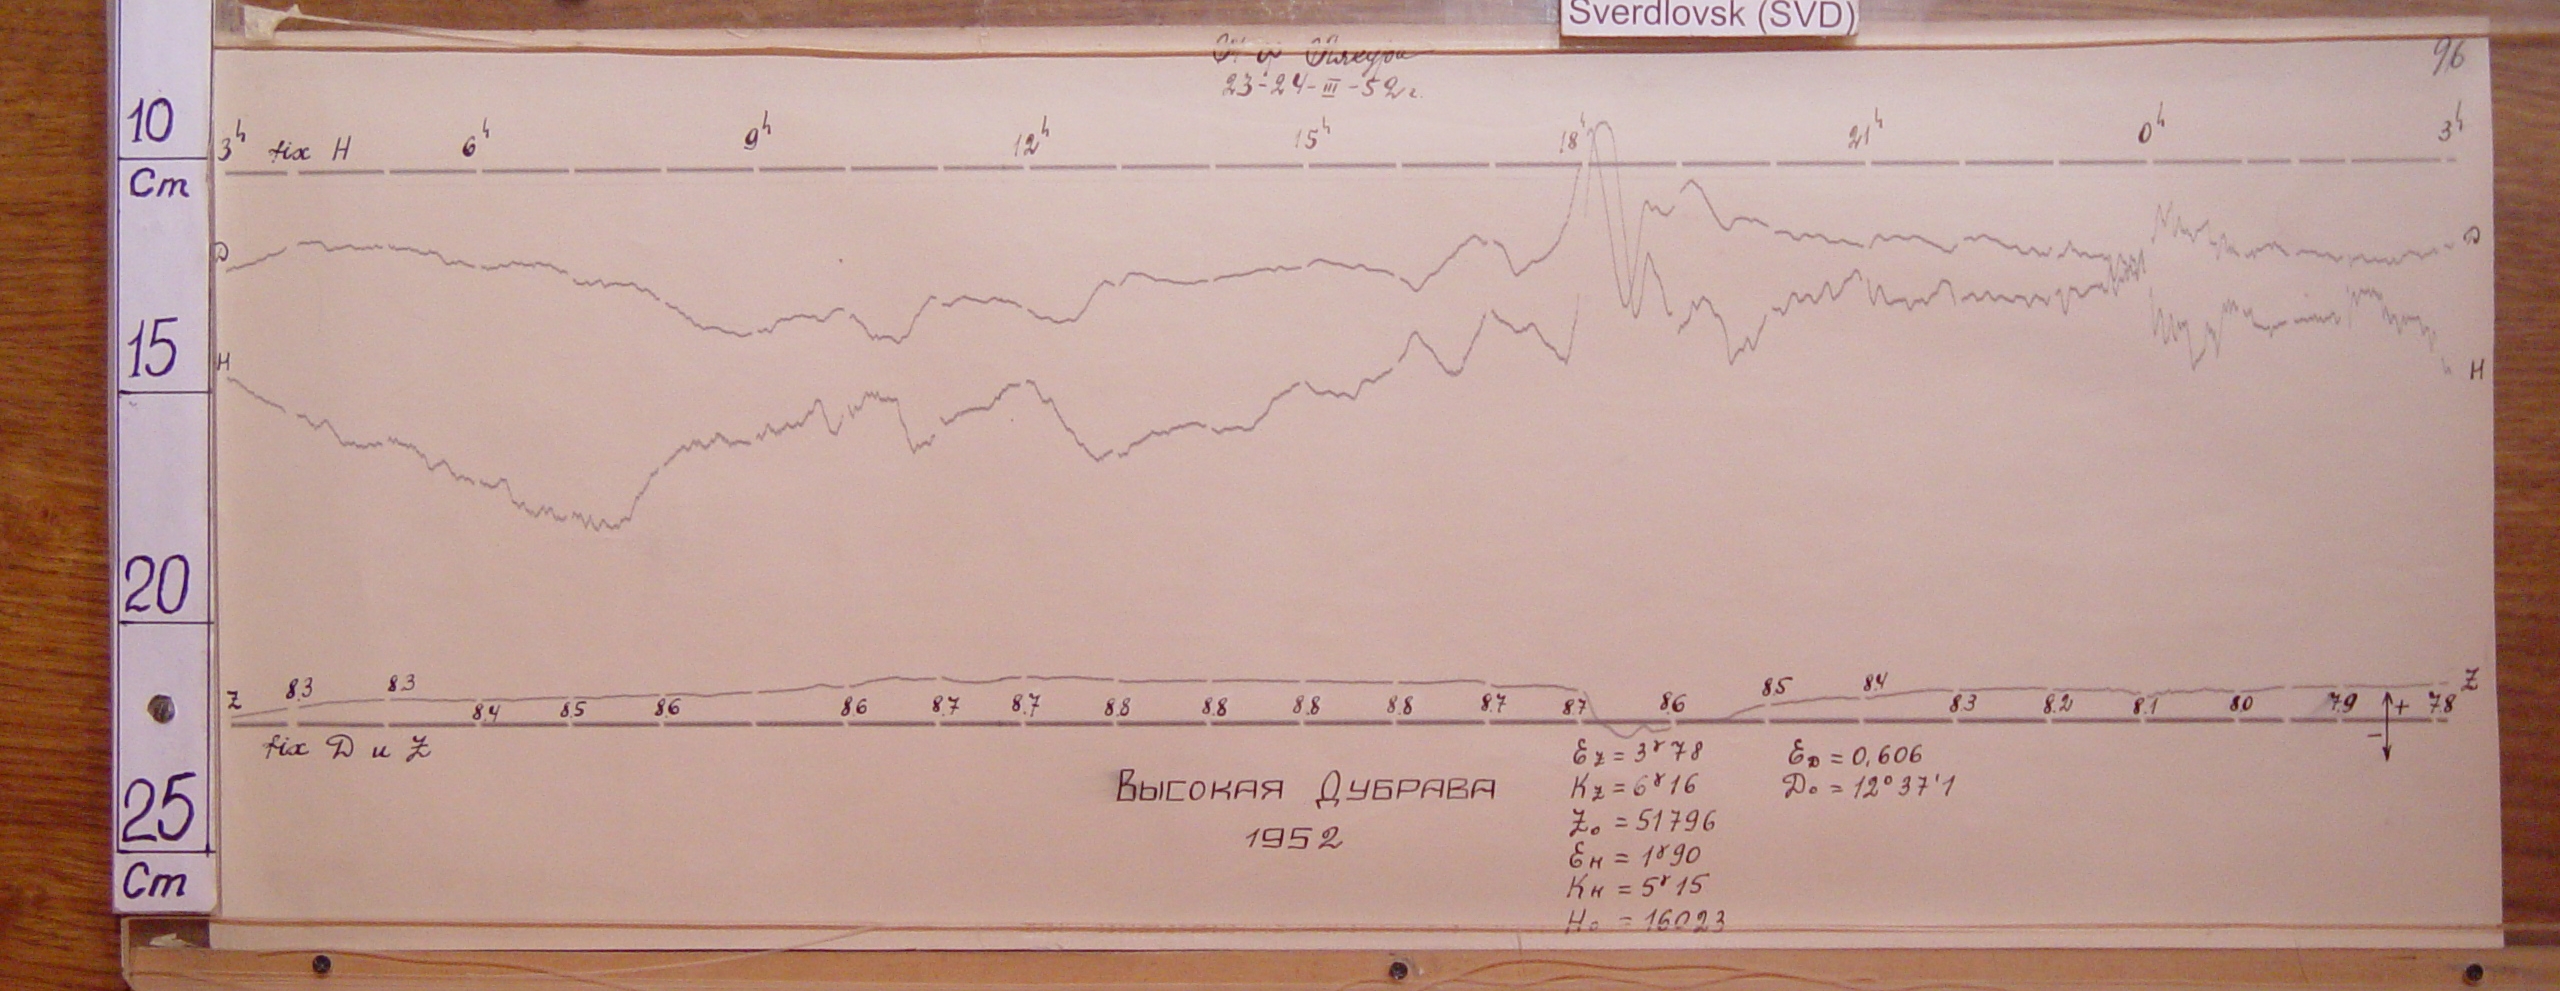 Sverdlovsk (SVD)
96
23-24-III-52г.
3h fix H 6h 9h 12h 15h 18h 21h 0h 3h
10
Cm
15
20
25
Cm
D D
H H
Z 8.3 8.3 8.4 8.5 8.6 8.6 8.7 8.7 8.8 8.8 8.8 8.8 8.7 8.7 8.6 8.5 8.4 8.3 8.2 8.1 8.0 7.9 7.8 Z
+
−
fix D и Z
Высокая Дубрава
1952
Ez = 3γ78
Kz = 6γ16
Z₀ = 51796
Eн = 1γ90
Kн = 5γ15
H₀ = 16023
ED = 0,606
D₀ = 12°37'1